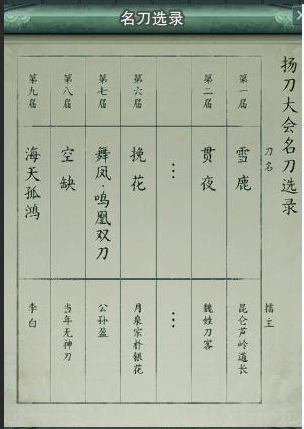 名刀选录
扬刀大会名刀选录
刀名
擂主
第一届
雪鹿
昆仑芦岭道长
第二届
贯夜
魏姓刀客
…
…
第六届
挽花
月泉宗朴银花
第七届
舞凤·鸣凰双刀
公孙盈
第八届
空缺
当年无神刀
第九届
海天孤鸿
李白